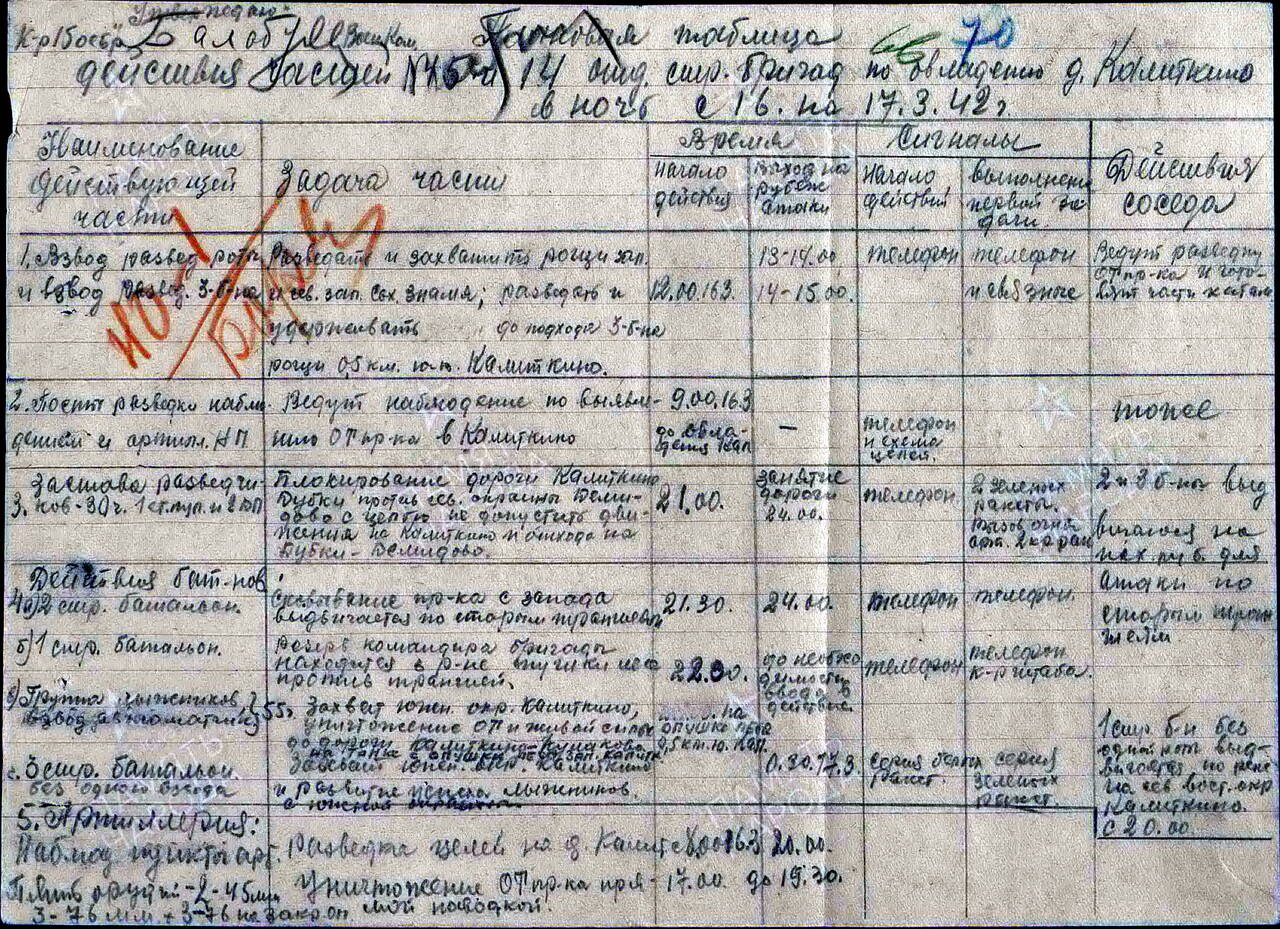 Утверждаю
К-р 15 осбр Балобу Воен.Ком. Плановая таблица 70
действия частей и 14 отд. стр. бригад по овладению д. Калиткино
в ночь с 16. на 17.3.42г.
Наименование действующей части
Задача части
Время
Начало действия
Выход на рубеж атаки
Сигналы
Начало действий
выполнение первой задачи
Действия соседа
1. Взвод развед роты
и взвод развед. 3-б-на
Разведать и захватить рощи зап.
и сев. зап. свх. Знамя; разведать и
удерживать до подхода 3-б-на
рощи 0,5 км. ю.ю. Калиткино.
12.00.16.3.
13-14.00
14-15.00.
телефон
телефон
и связные
Ведут разведку
ОТ пр-ка и гото-
вят части к атаке
2. Посты разведки наблю-
дением и артил. НП
Ведут наблюдение по выявле-
нию ОТ пр-ка в Калиткино
9.00.16.3
до овла-
дения Кал.
–
телефон
и схема
целей.
тоже
3. Застава разведчи-
ков-30ч. 1 ст. пул. и 2 РП
Блокирование дороги Калиткино
Бубки против сев. окраины Деми-
дово с целью не допустить дви-
жения на Калиткино и отхода на
Бубки-Демидово.
21.00.
занятие
дороги
24.00.
телефон
2 зеленых
ракеты.
Вызов огня
арт. 2 кр. рак.
2 и 3 б-ны выд
вигаются на
исх. руб. для
атаки по
старым тран
шеям
Действия бат-нов
4 а) 2 стр. батальон.
Сковывание пр-ка с запада
выдвигается по старым траншеям
21.30.
24.00.
телефон
телефон.
б) 1 стр. батальон.
Резерв командира бригады
находится в р-не опушки леса
против траншей.
22.30.
до необхо
димости
ввода в
действие
телефон
телефон
к-р штаба.
в) Группа лыжников,
взвод автоматчиков 55 г.
Захват южн. окр. Калиткино,
уничтожение ОТ и живой силы
до дороги Калиткино-Кулаково
на опушке
0,5 км. ю. Кал.
с. 3 стр. батальон.
без одного взвода
южн. окр. Калиткино
и развитие успеха лыжников.
0.30.17.3.
серия белых
ракет.
серия
зеленых
ракет.
1 стр б-н без
одной роты выд-
вигается по реке
на сев. вост. окр
Калиткино.
с 20.00
5. Артиллерия:
Наблюд пункты арт.
Разведка целей на д. Калит
с 8.00 16.3
20.00.
Пять орудий-2-45мм
3-76 мм. + 3-76 на закр оп.
Уничтожение ОТ пр-ка пря-
мой наводкой.
17.00. до 19.30.